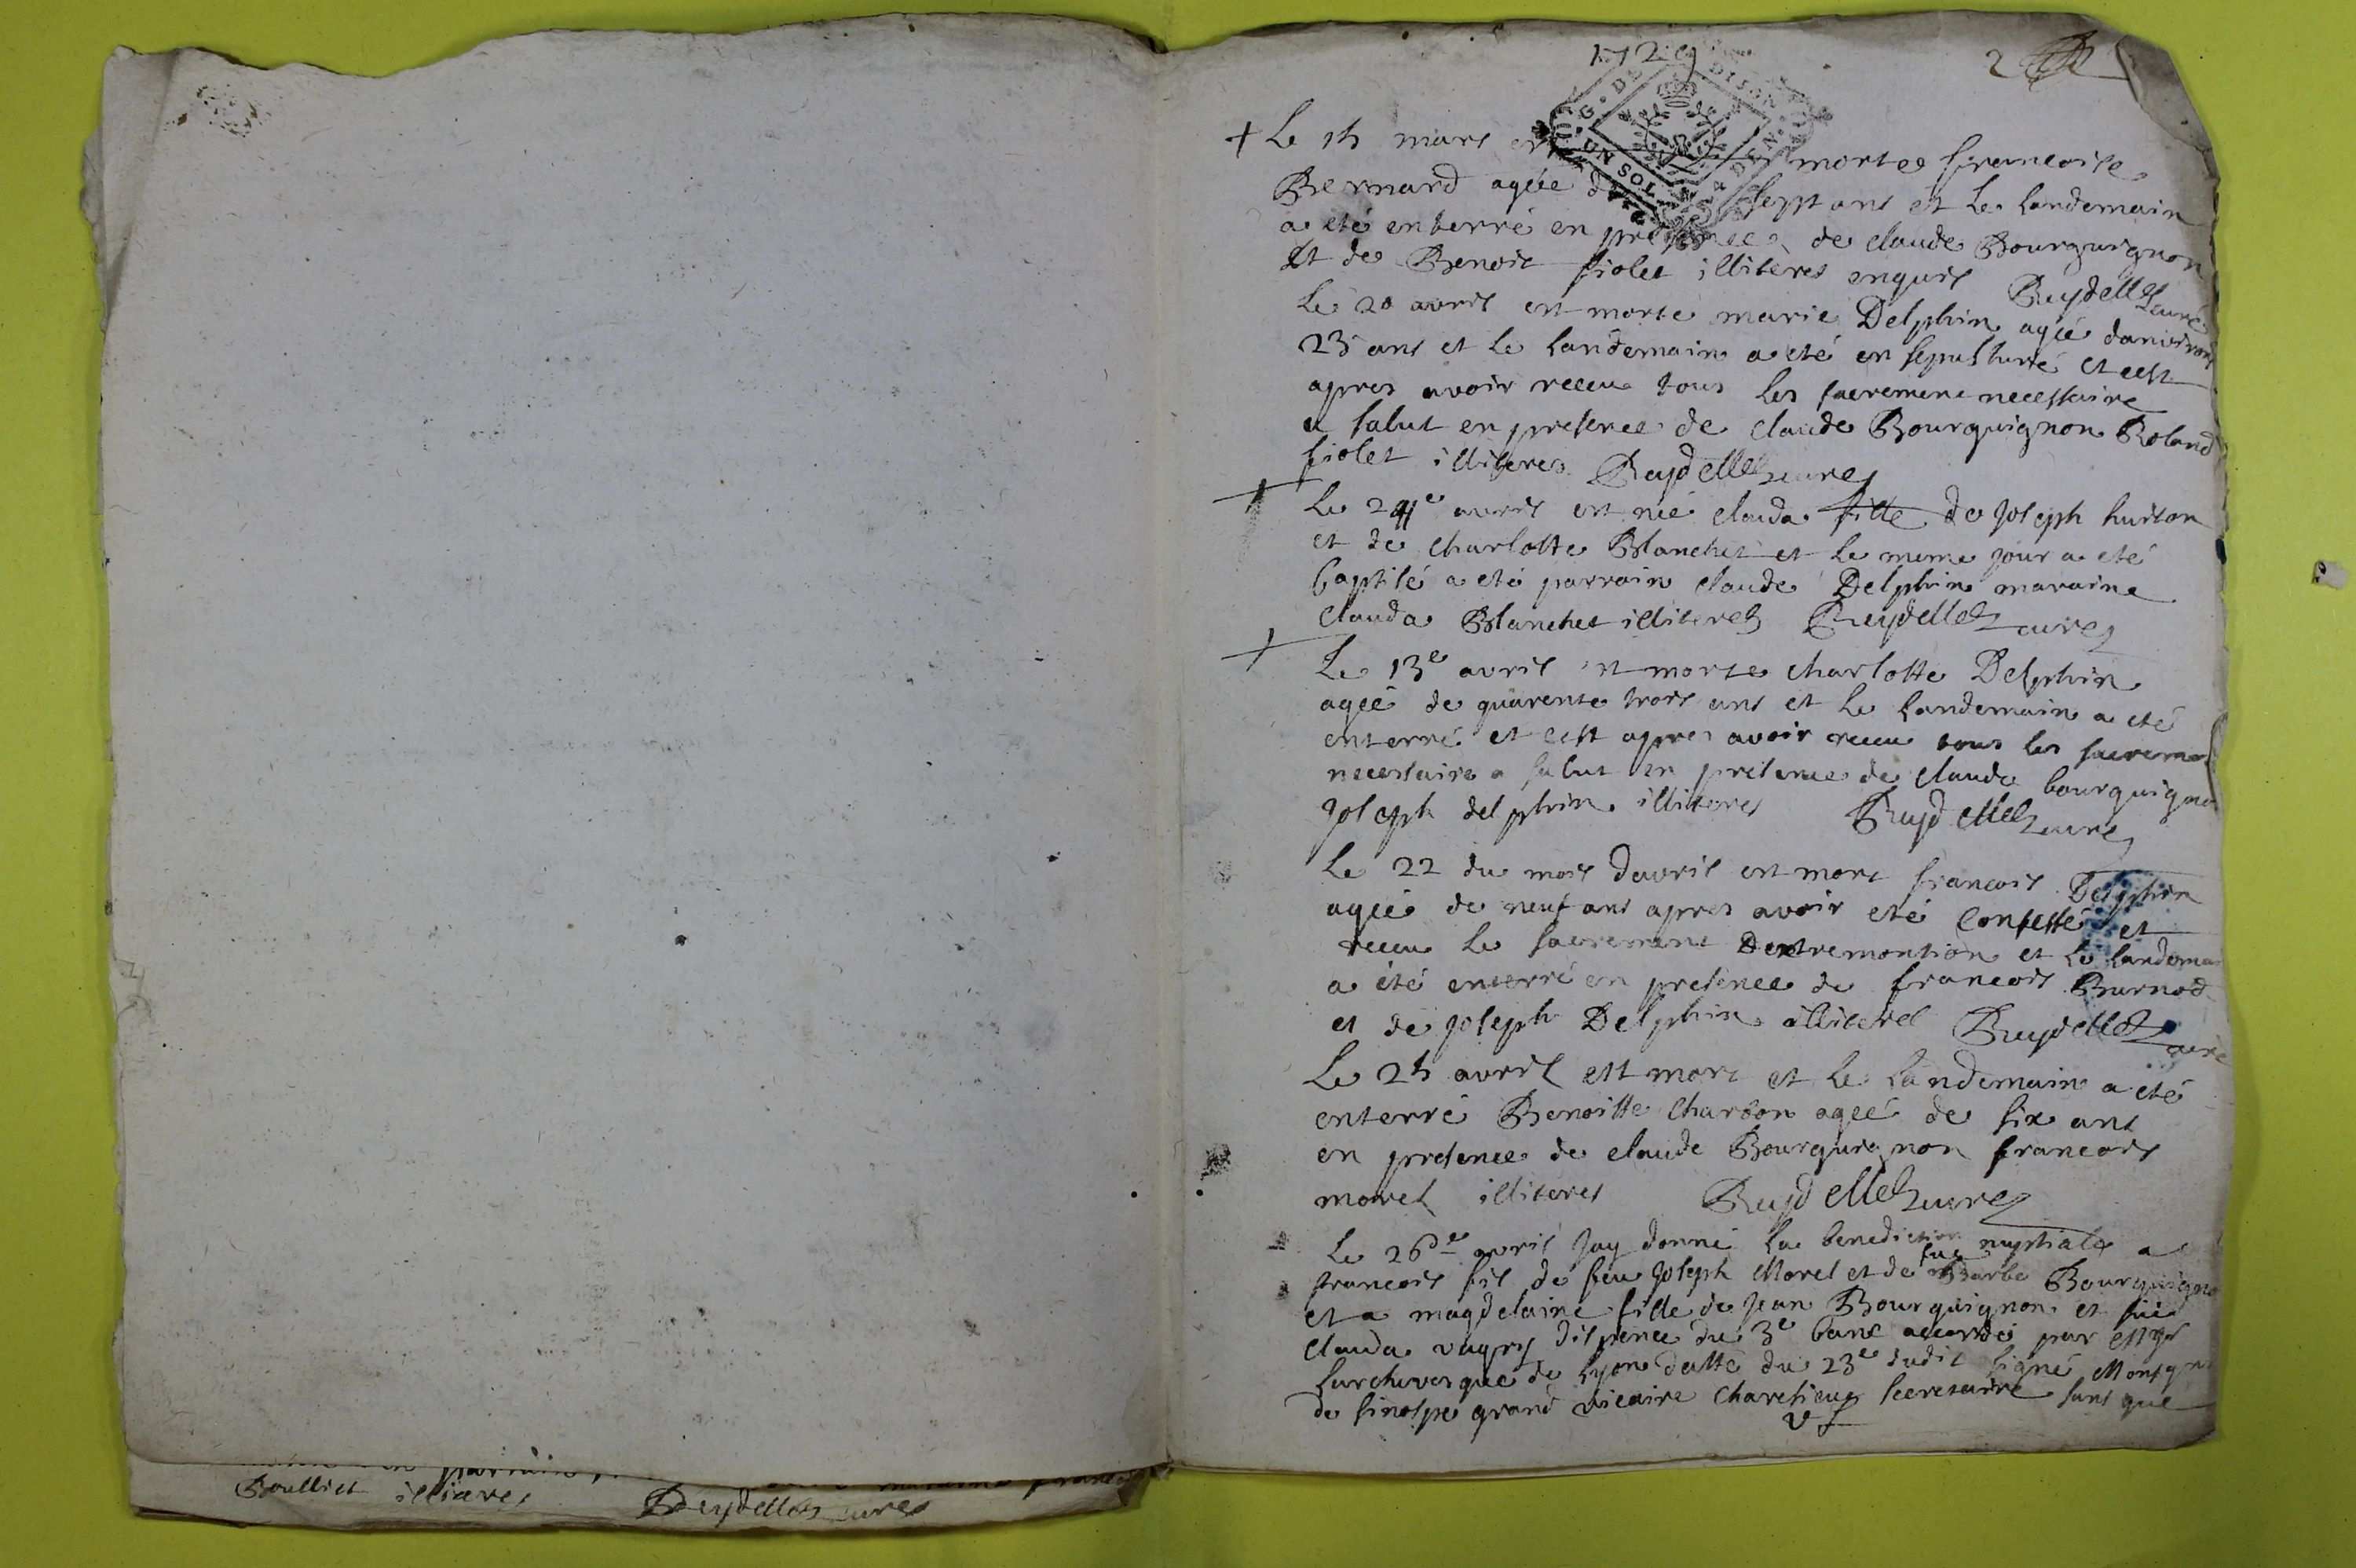 1729
2
+ Le 15 mars est morte francoise
Bernard agée de sept ans et Le landemain
a eté enterré en presence de claude Bourguignon
Et de Benoit fiolet illiteres enquis Reydellet curé
Le 20 avril est morte marie Delphin agée danviron
23 ans et Le landemain a eté en sepulturé et cest
apres avoir receu tous les sacrement necessaire
a salut en presence de claude Bourguignon Roland
fiolet illiteres Reydellet curé
Le avril est née clauda fille de Joseph
et de charlotte Blanchet et Le meme jour a eté
baptisé a eté parrain claude Delphin maraine
clauda Blanchet illiteres Reydellet curé
Le 13e avril est morte charlotte Delphin
agée de quarente trois ans et Le landemain a eté
enterré et cest apres avoir receu tous les sacremen
necessaire a salut en presence de claude bourguignon
Joseph delphin illiteres Reydellet curé
Le 22 du mois davril est mort francois Delphin
agée de neuf ans apres avoir eté confessé et
receu Le sacrement Dextremontion et Le landemai
a été enterré en presence de francois Burnod
et de Joseph Delphin illiteres Reydellet curé
Le 25 avril est mort et Le landemain a eté
enterré Benoitte Chardon ageé de six ans
en presence de claude Bourguignon francois
morel illiteres Reydellet curé
Le 26de avril Jay donné La benediction nuptiale a
francois fils de feu Joseph Morel et de fue Barbe Bourguigno
et a magdelaine fille de Jean Bourguignon et fue
clauda vugry dispence du 3e banc accordée par
Larchevesque de Lyon datté du 23e dudit signé Monsgn
de sinospe grand vicaire Charetieu secretaire sans que
Boulliet illiteres Reydellet curé